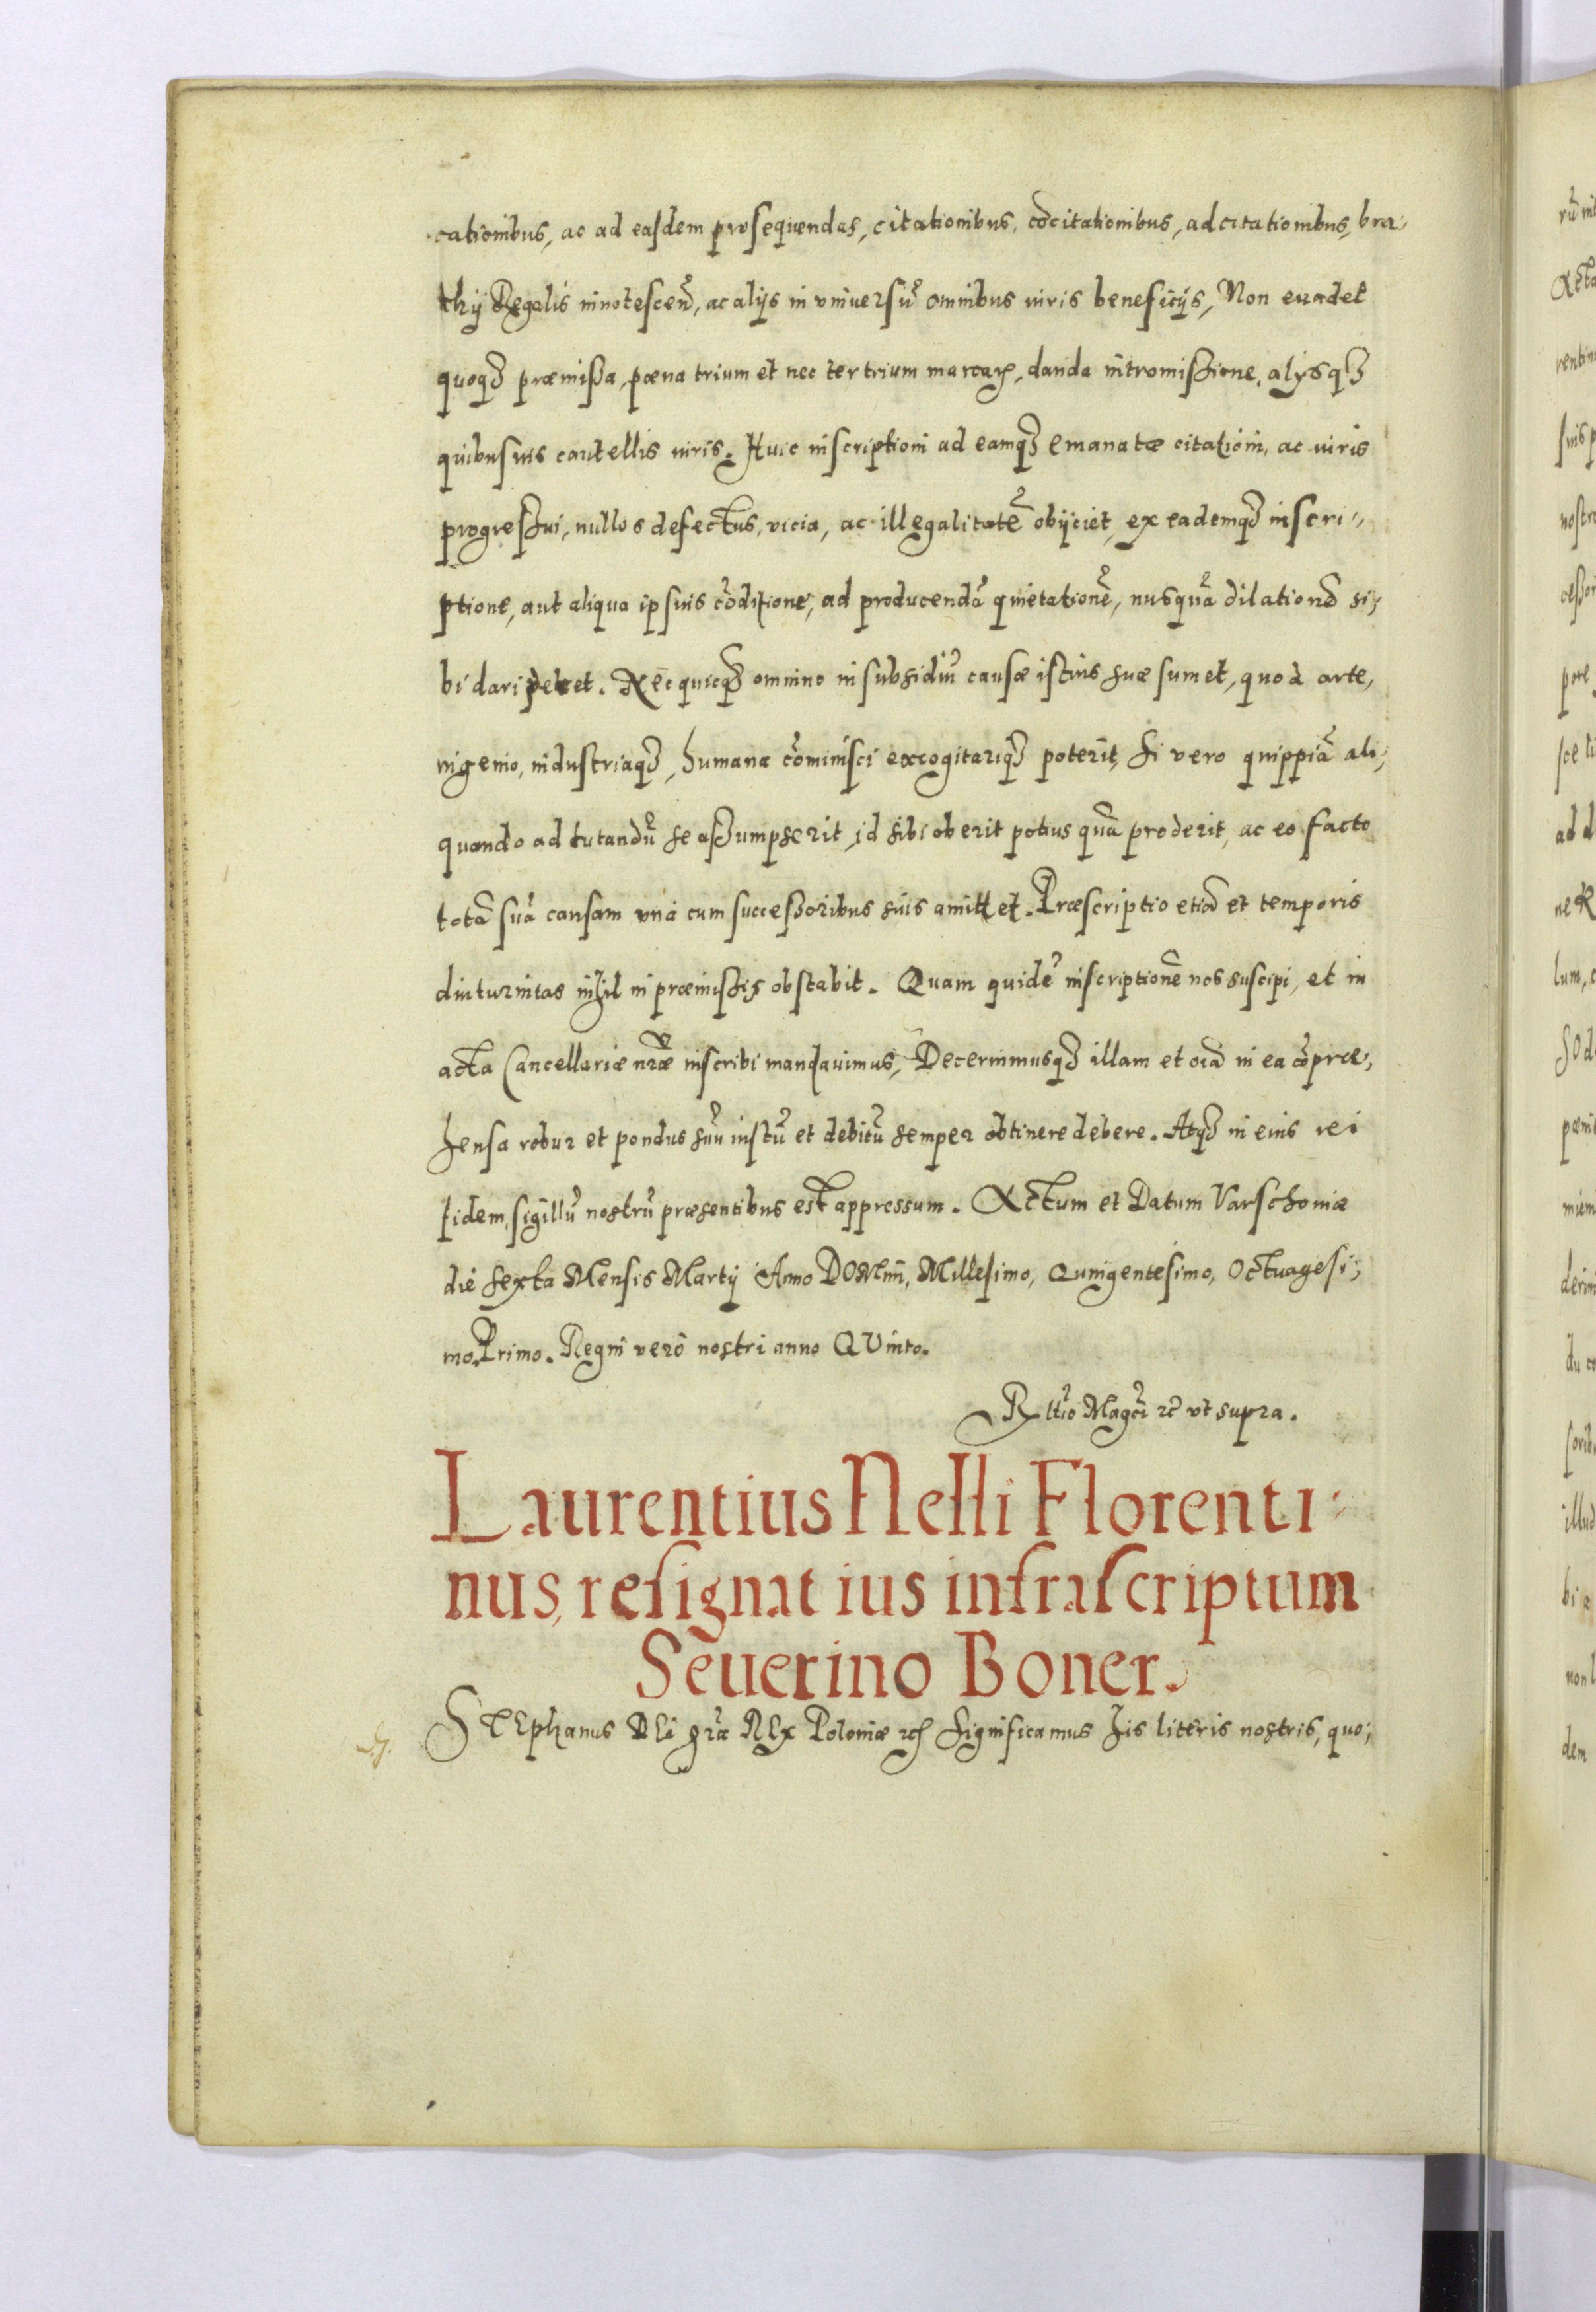 cationibus, ac ad easdem prosequendas, citationibus, cõcitationibus, adcitationibus, bra-
chÿ Regalis innotescen̄, ac alÿs in vniuersũ omnibus iuris beneficÿs, Non euadet
quoqȝ præmissa, pæna trium et nec ter trium marcarꝝ, danda intromissione, alÿsqȝ
quibusuis cautellis iuris. Huic inscriptioni ad eamqȝ emanatæ citationi, ac iuris
progressui, nullos defectus, vicia, ac illegalitatẽ obÿciet, ex eademqȝ inscri-
ptione, aut aliqua ipsius cõditione, ad producendã quietationẽ, nusquã dilationẽ si-
bi dari petet. Nec quicqȝ omnino in subsidiũ causæ istius suæ sumet, quod arte,
ingenio, industriaqȝ, humana cõminisci excogitariqȝ poterit, si vero quippiã ali-
quando ad tutandũ se assumpserit, id sibi oberit potius quã proderit, ac eo facto
totã suã causam vnà cum successoribus suis amittet. Præscriptio etiã et temporis
diuturnitas nihil in præmissis obstabit. Quam quidẽ inscriptionẽ nos suscipi, et in
acta Cancellariæ nr̃æ inscribi mandauimus, Decernimusqȝ illam et oiã in ea cõpræ-
hensa robur et pondus suũ iustũ et debitũ semper obtinere debere. Atqȝ in eius rei
fidem, sigillũ nostrũ præsentibus est appressum. Actum et Datum Varschouiæ
die sexta Mensis Martÿ Anno DOMini, Millesimo, Quingentesimo, Octuagesi-
mo Primo. Regni verò nostri anno QVinto.
Rl̃tio Magc̃i rc̃ vt supra.
Laurentius Nelli Florenti-
nus, resignat ius infrascriptum
Seuerino Boner.
STEphanus DEi gr̃a REx Poloniæ rcꝫ Significamus his literis nostris, quo-